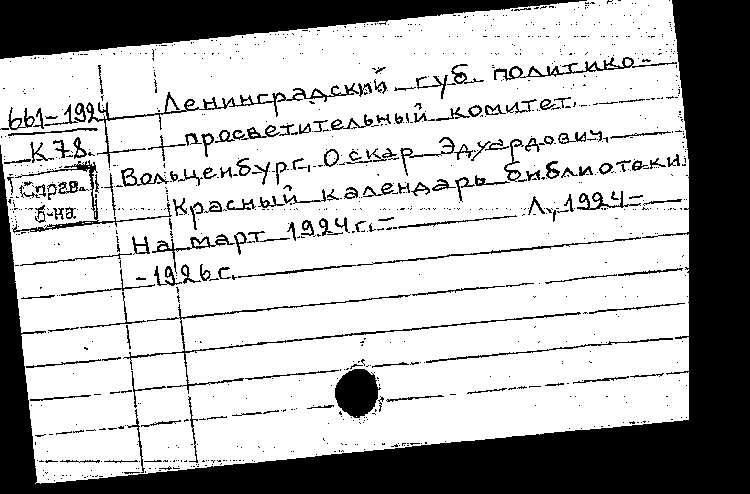 661-1924
К 78.
Справ.
б-на
Ленинградский губ. политико-
просветительный комитет.
Вольценбург, Оскар Эдуардович,
Красный календарь библиотеки
На март 1924 г. - Л., 1924-
-1926 г.